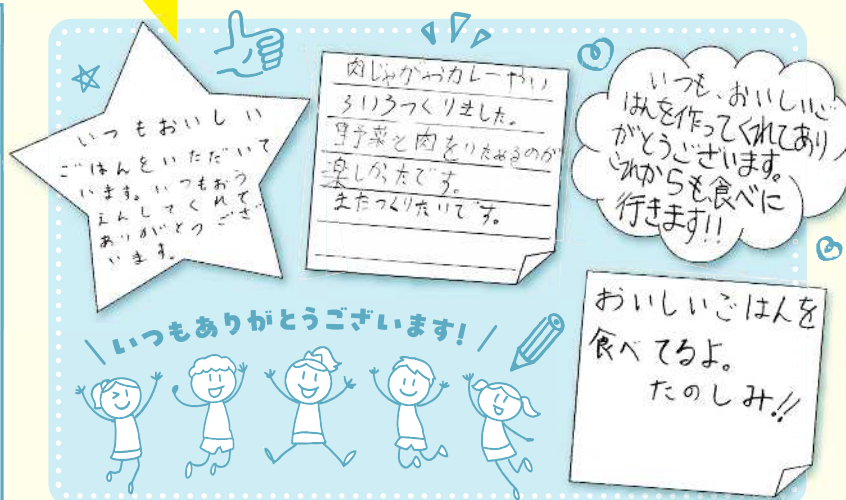 いつもおいしい
ごはんをいただいて
います。いつもおう
えんしてくれて
ありがとうござ
います。
肉じゃがやカレーやい
ろいろつくりました。
野菜と肉をいためるのが
楽しかたです。
またつくりたいです。
いつも、おいしいご
はんを作ってくれてあり
がとうございます。
これからも食べに
行きます!!
おいしいごはんを
食べてるよ。
たのしみ!!
いつもありがとうございます!